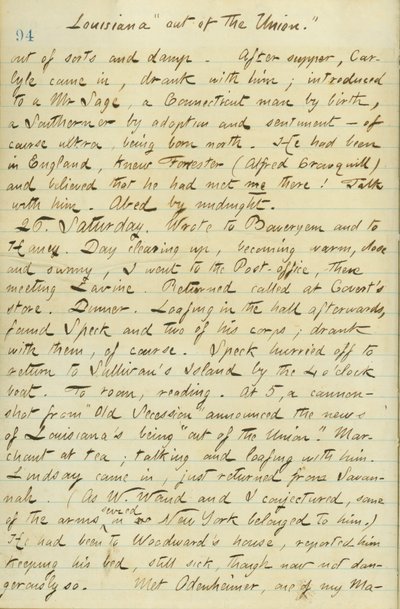 Louisiana "out of the Union."
94
out of sorts and damp. After supper, Car-
lyle came in, drank with him; introduced
to a Mr Sage, a Connecticut man by birth,
a Southerner by adoption and sentiment — of
course ultra, being born north. He had been
in England, knew Forrester (Alfred Crowquill)
and believed that he had met me there! Talk
with him. Abed by midnight.
26. Saturday. Wrote to Boweryem and to
Haney. Day clearing up, becoming warm, close
and sunny, I went to the Post-office, there
meeting Lavine. Returned called at Covert's
store. Dinner. Loafing in the hall afterwards,
found Speck and two of his corps; drank
with them, of course. Speck hurried off to
return to Sullivan's Island by the 4 o'clock
boat. To room, reading. At 5, a cannon-
shot from "Old Secession" announced the news
of Louisiana's being "out of the Union." Mar-
chant at tea; talking and loafing with him.
Lindsay came in, just returned from Savan-
nah. (As W. Waud and I conjectured, some
of the arms seized in New York belonged to him.)
He had been to Woodward's house, reported him
keeping his bed, still sick, though now not dan-
gerously so. Met Odenheimer, one of my Ma-